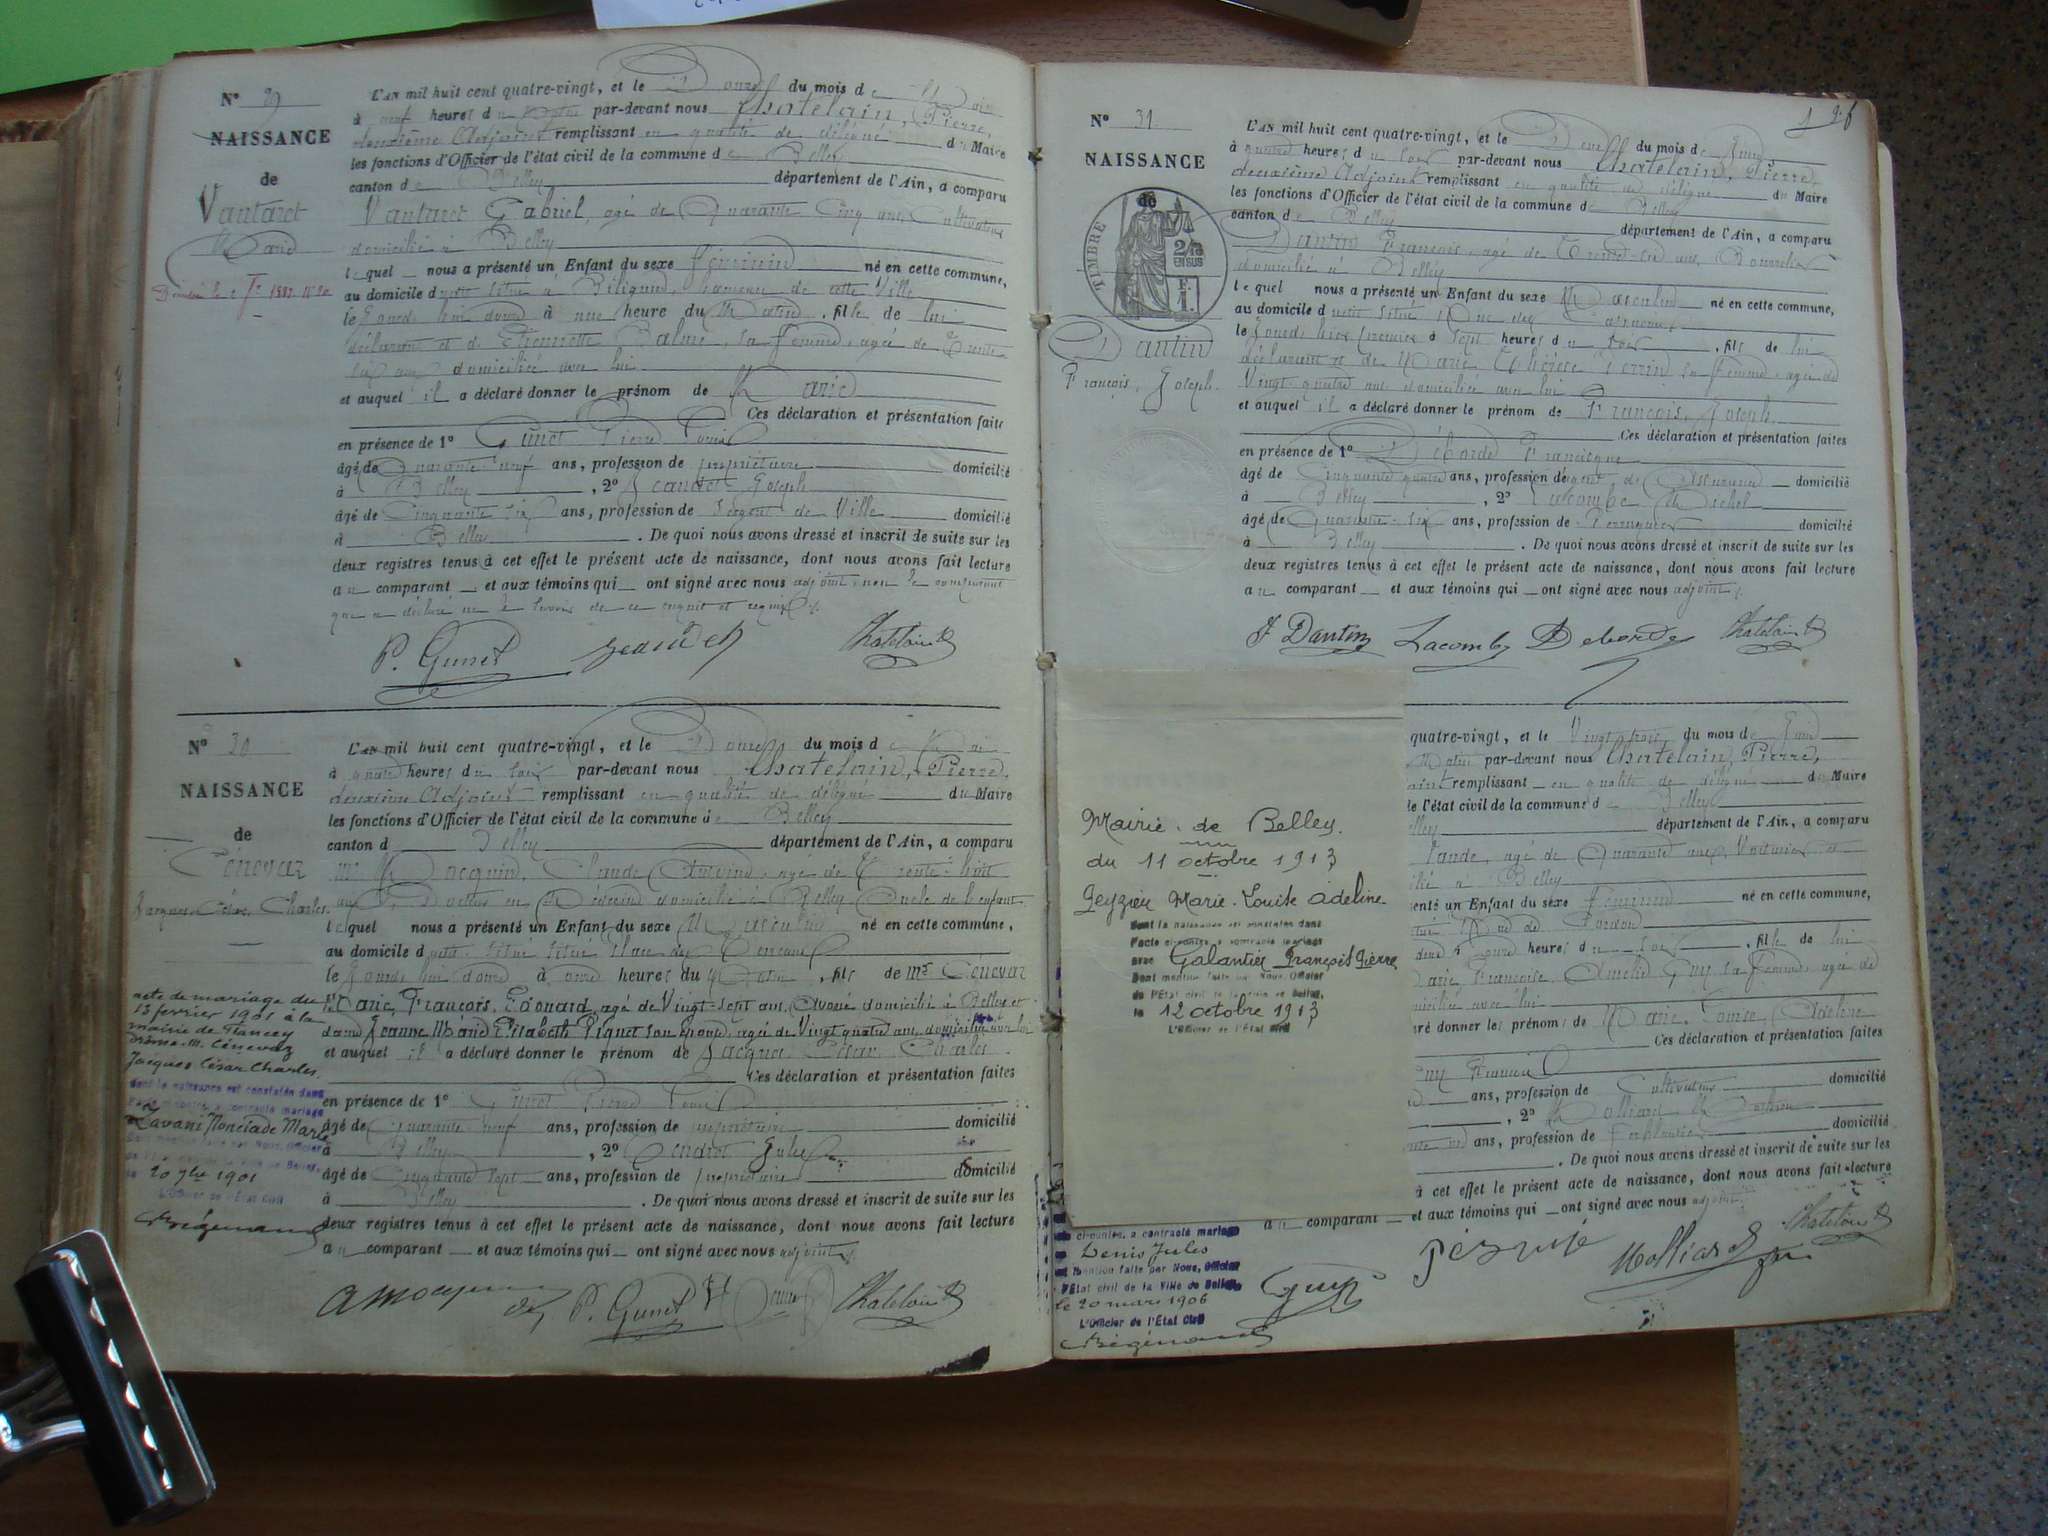 N° 29
NAISSANCE
de
Vantaret
Marie
L'AN mil huit cent quatre-vingt, et le Douze du mois de Mai
à neuf heures du Matin par-devant nous Chatelain, Pierre,
deuxième Adjoint remplissant en qualité de délégué du Maire
les fonctions d'Officier de l'état civil de la commune de Belley
canton de Belley département de l'Ain, a comparu
Vantaret Gabriel, agé de Quarante Cinq ans, Cultivateur
domicilié à Belley
lequel nous a présenté un Enfant du sexe féminin né en cette commune,
au domicile dudit situé à hameau de cette Ville
le jourd'hui douze à une heure du Matin, fille de lui
déclarant et de Etiennette Balme, sa femme, agée de Trente
six ans domiciliée avec lui
et auquel il a déclaré donner le prénom de Marie
Ces déclaration et présentation faites
en présence de 1° Gunet Pierre Louis
âgé de Quarante neuf ans, profession de propriétaire domicilié
à Belley, 2° Jeandet Joseph
âgé de Cinquante six ans, profession de Sergent de Ville domicilié
à Belley. De quoi nous avons dressé et inscrit de suite sur les
deux registres tenus à cet effet le présent acte de naissance, dont nous avons fait lecture
au comparant et aux témoins qui ont signé avec nous adjoint, non le comparant
que a déclaré ne le savoir de ce enquit et requis
P. Gunet Jeandet Chatelain
N° 30
NAISSANCE
de
Cénevaz
Jacques César Charles
acte de mariage du
13 février 1901 à la
mairie de Tancey
Drôme. M. Cénevaz
Jacques César Charles,
dont la naissance est constatée dans
l'acte ci-contre a contracté mariage
Lavani Nonciade Marie
20 7bre 1901
L'Officier de l'État Civil
L'AN mil huit cent quatre-vingt, et le Douze du mois de Mai
à quatre heures du soir par-devant nous Chatelain, Pierre,
deuxième Adjoint remplissant en qualité de délégué du Maire
les fonctions d'Officier de l'état civil de la commune de Belley
canton de Belley département de l'Ain, a comparu
Mr Mocquin, Claude Antoine, agé de Trente-huit
ans, Docteur en Médecine domicilié à Belley, Oncle de l'enfant
lequel nous a présenté un Enfant du sexe Masculin né en cette commune,
au domicile situé Place des Terreaux
le jourd'hui douze à onze heures du Matin, fils de Mr Cénevaz
Marie, François, Edouard, agé de Vingt-sept ans, Avoué domicilié à Belley et
dame Jeanne Marie Elisabeth Piquet son épouse, agée de Vingt quatre ans, domiciliée avec lui
et auquel il a déclaré donner le prénom de Jacques César Charles
Ces déclaration et présentation faites
en présence de 1° Gunet Pierre Louis
âgé de Quarante neuf ans, profession de propriétaire domicilié
à Belley, 2° Jules
âgé de Cinquante sept ans, profession de propriétaire domicilié
à Belley. De quoi nous avons dressé et inscrit de suite sur les
deux registres tenus à cet effet le présent acte de naissance, dont nous avons fait lecture
au comparant et aux témoins qui ont signé avec nous adjoint
P. Gunet Chatelain
N° 31
NAISSANCE
de
TIMBRE
2/10 EN SUS
F. 1.
Dantin
François, Joseph
L'AN mil huit cent quatre-vingt, et le Deux du mois de Juin
à quatre heures du soir par-devant nous Chatelain, Pierre,
deuxième Adjoint remplissant en qualité de délégué du Maire
les fonctions d'Officier de l'état civil de la commune de Belley
canton de Belley département de l'Ain, a comparu
Dantin François, agé de Trente-six ans, Bourrelier
domicilié à Belley
lequel nous a présenté un Enfant du sexe Masculin né en cette commune,
au domicile dudit situé Rue des
le jourd'hier premier à sept heures du soir, fils de lui
déclarant et de Marie Thérèse Perrin sa femme, agée de
Vingt-quatre ans domiciliée avec lui
et auquel il a déclaré donner le prénom de François, Joseph
Ces déclaration et présentation faites
en présence de 1° Deborde Francisque
âgé de Cinquante quatre ans, profession d'agent de Assurance domicilié
à Belley, 2° Lacombe Michel
âgé de Quarante-six ans, profession de Perruquier domicilié
à Belley. De quoi nous avons dressé et inscrit de suite sur les
deux registres tenus à cet effet le présent acte de naissance, dont nous avons fait lecture
au comparant et aux témoins qui ont signé avec nous adjoint
F Dantin Lacombe Deborde Chatelain
Mairie de Belley.
du 11 octobre 1913
Peyzieu Marie-Louise Adeline
Dont la naissance est constatée dans
l'acte ci-contre a contracté mariage
avec Galantier François Pierre
Dont mention faite par Nous, Officier
de l'État civil de la ville de Belley,
le 12 octobre 1913
L'Officier de l'État Civil
quatre-vingt, et le Vingt trois du mois de Juin
Matin par-devant nous Chatelain, Pierre,
remplissant en qualité de délégué du Maire
de l'état civil de la commune de Belley
Belley département de l'Ain, a comparu
Claude, agé de Quarante ans, Voiturier
à Belley
présenté un Enfant du sexe féminin né en cette commune,
heures du soir, fille de lui
Marie, Françoise Amélie Guy sa femme, agée de
domiciliée avec lui
donner les prénoms de Marie, Louise, Adeline
Ces déclaration et présentation faites
Guy Francis
ans, profession de Cultivateur domicilié
, 2° Molliard
ans, profession de Ferblantier domicilié
. De quoi nous avons dressé et inscrit de suite sur les
à cet effet le présent acte de naissance, dont nous avons fait lecture
au comparant et aux témoins qui ont signé avec nous adjoint
ci-contre, a contracté mariage
Denis Jules
mention faite par Nous, Officier
l'État civil de la Ville de Belley
le 20 mars 1906
L'Officier de l'État Civil
Guy Molliard Chatelain